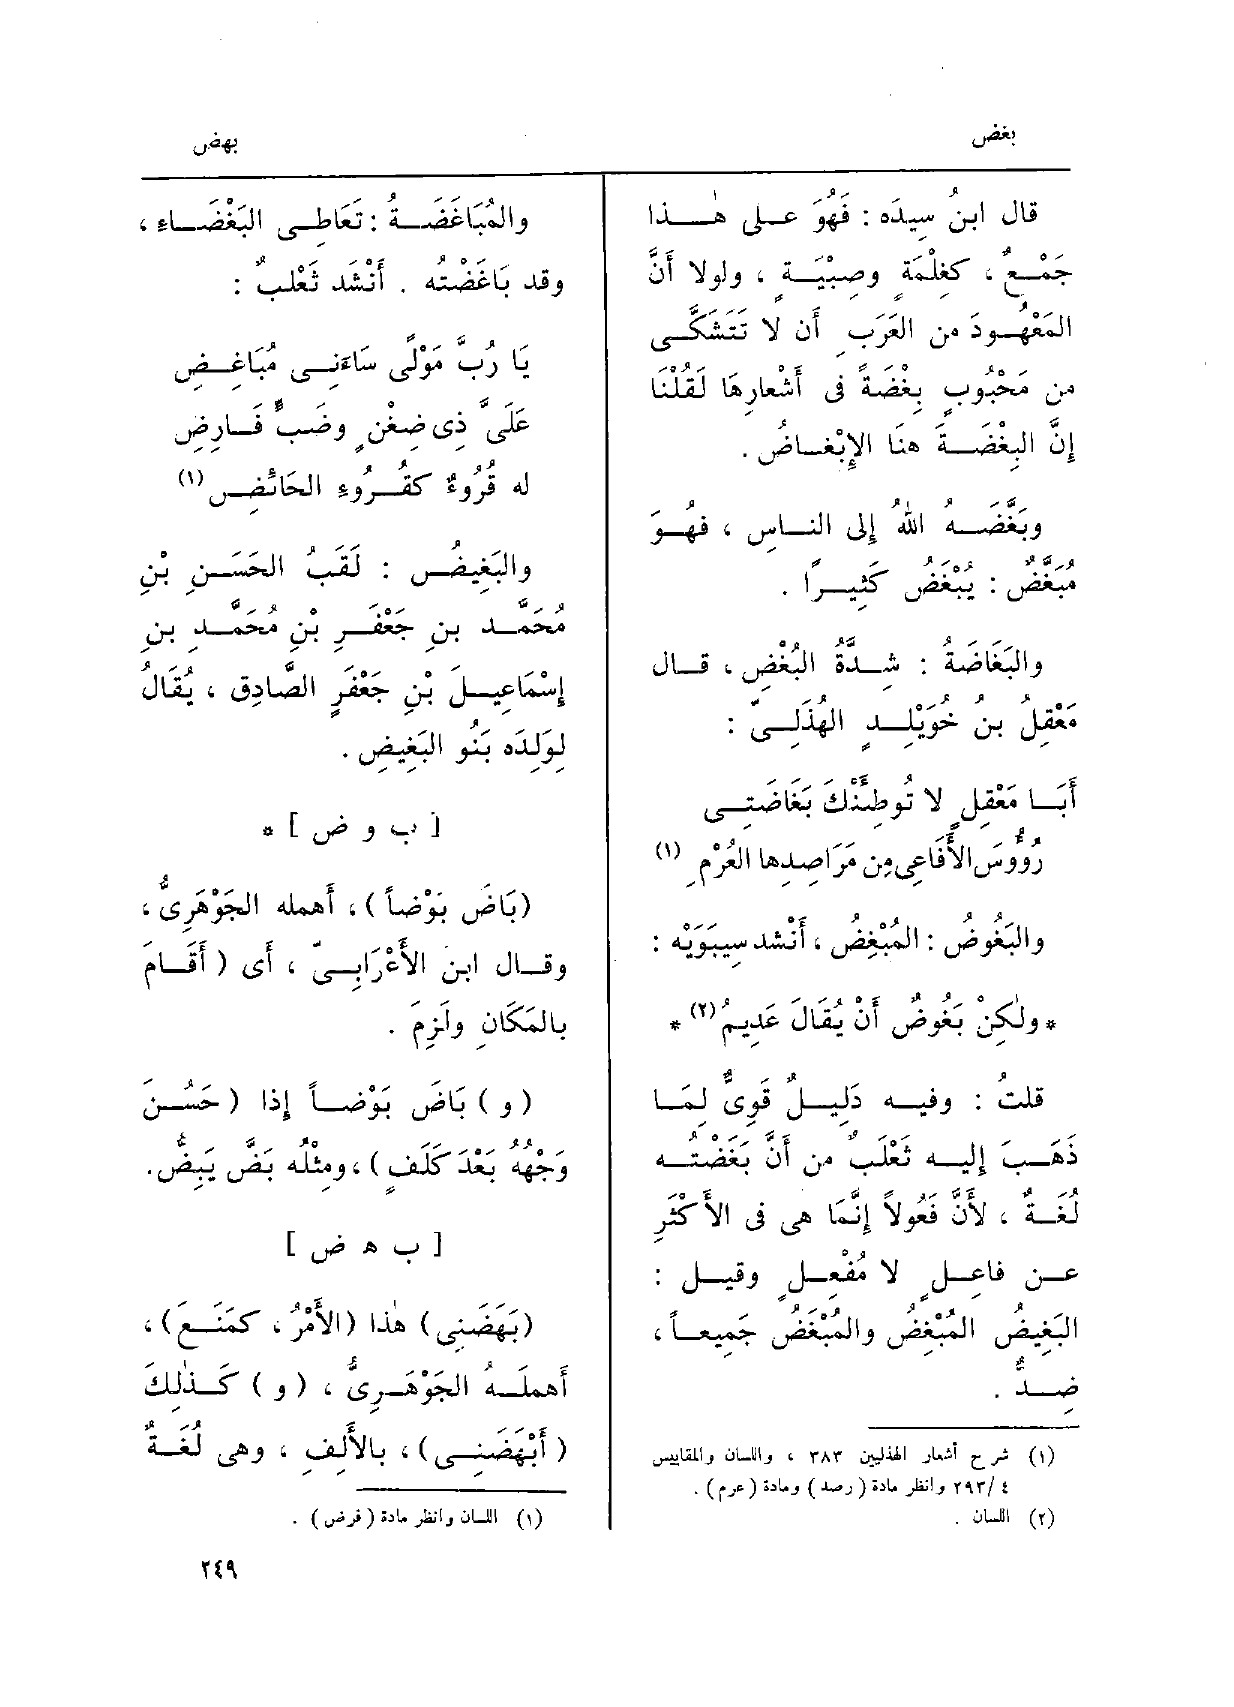 بغض
بهض
قال ابنُ سِيدَه : فَهُوَ على هٰذا
جَمْعٌ ، كغِلْمَةٍ وصِبْيَةٍ ، ولولا أَنَّ
المَعْهُودَ من العَرَبِ أَن لا تَتَشَكَّى
من مَحْبُوبٍ بِغْضَةً فى أَشْعارِهَا لَقُلْنَا
إِنَّ البِغْضَةَ هنَا الإِبْغَاضُ .
وبَغَّضَه اللهُ إِلى النَّاسِ ، فهُوَ
مُبَغَّضٌ : يُبْغَضُ كَثِيرًا .
والبَغَاضَةُ : شِدَّةُ البُغْضِ ، قال
مَعْقِلُ بنُ خُوَيْلِدٍ الهُذَلِىّ :
أَبَا مَعْقِلٍ لا تُوطِئَنْكَ بَغَاضَتِى
رُؤُوسَ الأَفَاعِى مِن مَرَاصِدِها العُرْمِ (١)
والبَغُوضُ : المُبْغِضُ ، أَنْشد سِيبَوَيْه :
* ولٰكِنْ بَغُوضٌ أَنْ يُقَالَ عَدِيمُ (٢) *
قلتُ : وفيه دَلِيلٌ قَوِىٌّ لِمَا
ذَهَبَ إِليه ثَعْلَبٌ من أَنَّ بَغَضْتُه
لُغَةٌ ، لأَنَّ فَعُولاً إِنَّمَا هى فى الأَكْثَرِ
عن فاعِلٍ لا مُفْعِلٍ وقيل :
البَغِيضُ المُبْغِضُ والمُبْغَضُ جَمِيعاً ،
ضِدٌّ .
(١) شرح أشعار الهذليين ٣٨٣ ، واللسان والمقاييس
٢٩٣/٤ وانظر مادة (رصد) ومادة (عرم) .
(٢) اللسان .
والمُبَاغَضَةُ : تَعَاطِى البَغْضَاءِ ،
وقد بَاغَضْتُه . أَنْشد ثَعْلَبٌ :
يَا رُبَّ مَوْلًى سَاءَنِى مُبَاغِضِ
عَلَىَّ ذِى ضِغْنٍ وضَبٍّ فَارِضِ
له قُرُوءٌ كقُرُوءِ الحَائضِ (١)
والبَغِيضُ : لَقَبُ الحَسَنِ بْنِ
مُحَمَّدِ بنِ جَعْفَرِ بْنِ مُحَمَّدِ بنِ
إِسْمَاعِيلَ بْنِ جَعْفَرٍ الصَّادِقِ ، يُقَالُ
لِوَلَدِه بَنُو البَغِيضِ .
[ ب و ض ] *
(بَاضَ بَوْضاً) ، أَهمله الجَوْهَرِىُّ ،
وقال ابن الأَعْرَابِىّ ، أَى (أَقَامَ
بالمَكَانِ ولَزِمَ .
(و) بَاضَ بَوْضاً إِذا (حَسُنَ
وَجْهُهُ بَعْدَ كَلَفٍ) ، ومِثْلُه بَضَّ يَبِضُّ .
[ ب ه ض ]
(بَهَضَنِى) هٰذا (الأَمْرُ ، كمَنَعَ) ،
أَهملَهُ الجَوْهَرِىُّ ، (و) كَذٰلِكَ
(أَبْهَضَنِى) ، بالأَلِفِ ، وهى لُغَةٌ
(١) اللسان وانظر مادة (فرض) .
٢٤٩